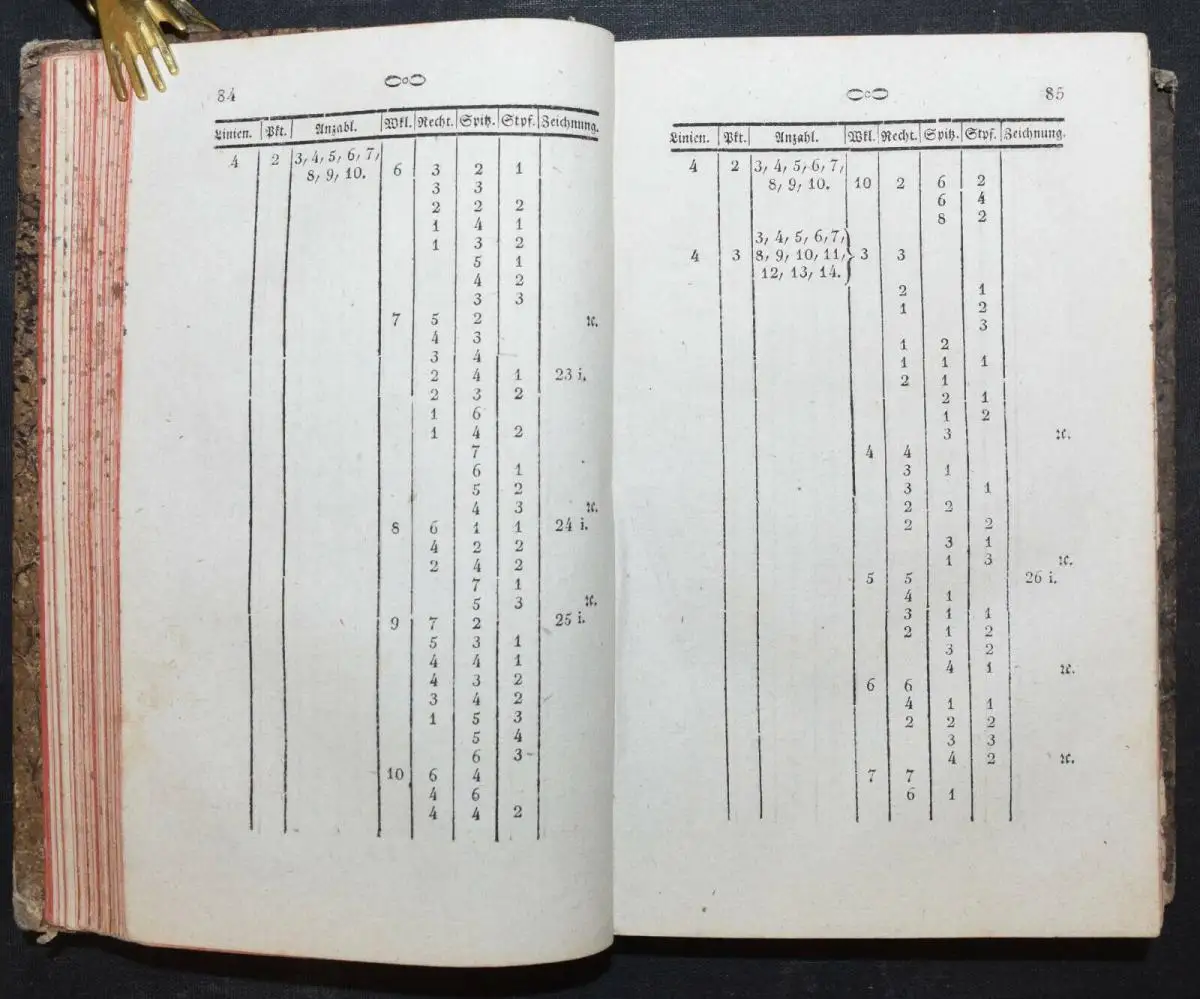 84
Linien. Pkt. Anzahl. Wkl. Recht. Spitz. Stpf. Zeichnung.
4 2 3, 4, 5, 6, 7,
8, 9, 10. 6 3 2 1
3 3
2 2 2
1 4 1
1 3 2
5 1
4 2
3 3
7 5 2 ꝛc.
4 3
3 4
2 4 1 23 i.
2 3 2
1 6
1 4 2
7
6 1
5 2
4 3 ꝛc.
8 6 1 1 24 i.
4 2 2
2 4 2
7 1
5 3 ꝛc.
9 7 2 25 i.
5 3 1
4 4 1
4 3 2
3 4 2
1 5 3
5 4
6 3
10 6 4
4 6
4 4 2
85
Linien. Pkt. Anzahl. Wkl. Recht. Spitz. Stpf. Zeichnung.
4 2 3, 4, 5, 6, 7,
8, 9, 10. 10 2 6 2
6 4
8 2
3, 4, 5, 6, 7,
4 3 8, 9, 10, 11, 3 3
12, 13, 14.
2 1
1 2
3
1 2
1 1 1
2 1
2 1
1 2
3 ꝛc.
4 4
3 1
3 1
2 2
2 2
3 1
1 3 ꝛc.
5 5 26 i.
4 1
3 1 1
2 1 2
3 2
4 1 ꝛc.
6 6
4 1 1
2 2 2
3 3
4 2 ꝛc.
7 7
6 1